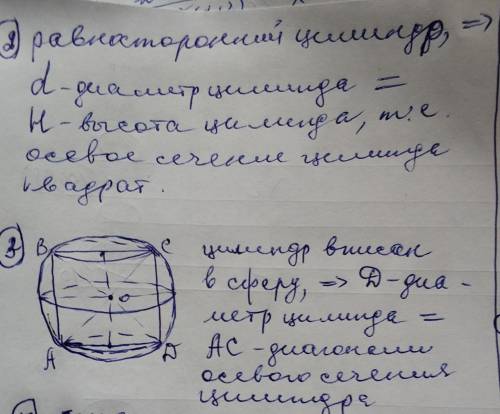 2) равносторонний цилиндр, =>
d-диаметр цилинда =
H-высота цилинда, т.е.
осевое сечение цилинда
квадрат.
3)
B C
o
A D
цилиндр вписан
в сферу, => Д-диа-
метр цилинда =
AC-диагонали
осевого сечения
цилиндра